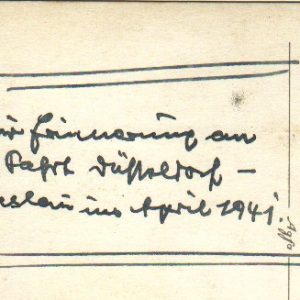 zur Erinnerung an
Fahrt Düsseldorf –
Breslau im April 1941.